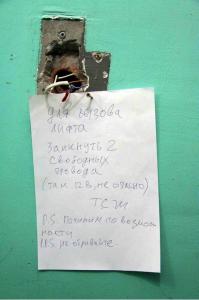 Для вызова
лифта
Замкнуть 2
свободных
провода
(там 12В, не опасно)
ТСЖ
P.S. Починим по возмож
ности
P.S. не обрывайте